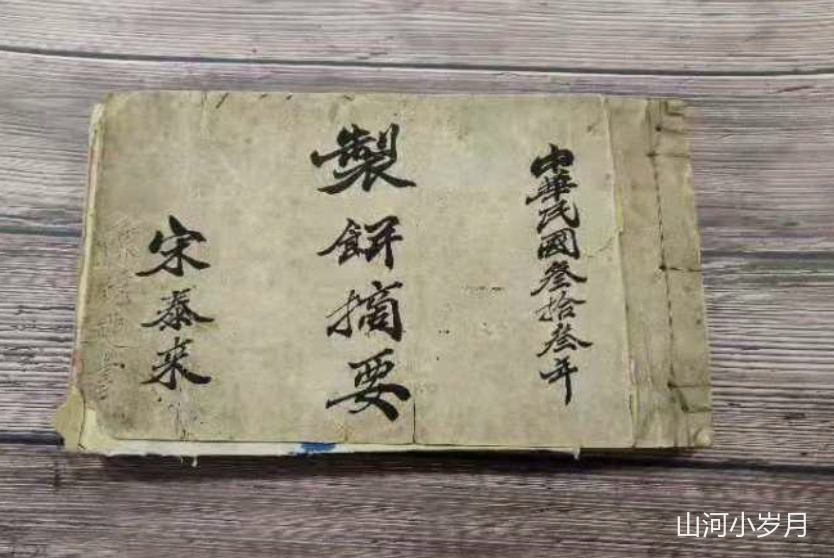 中華民國叁拾叁年
製餅摘要
宋泰来
山河小岁月